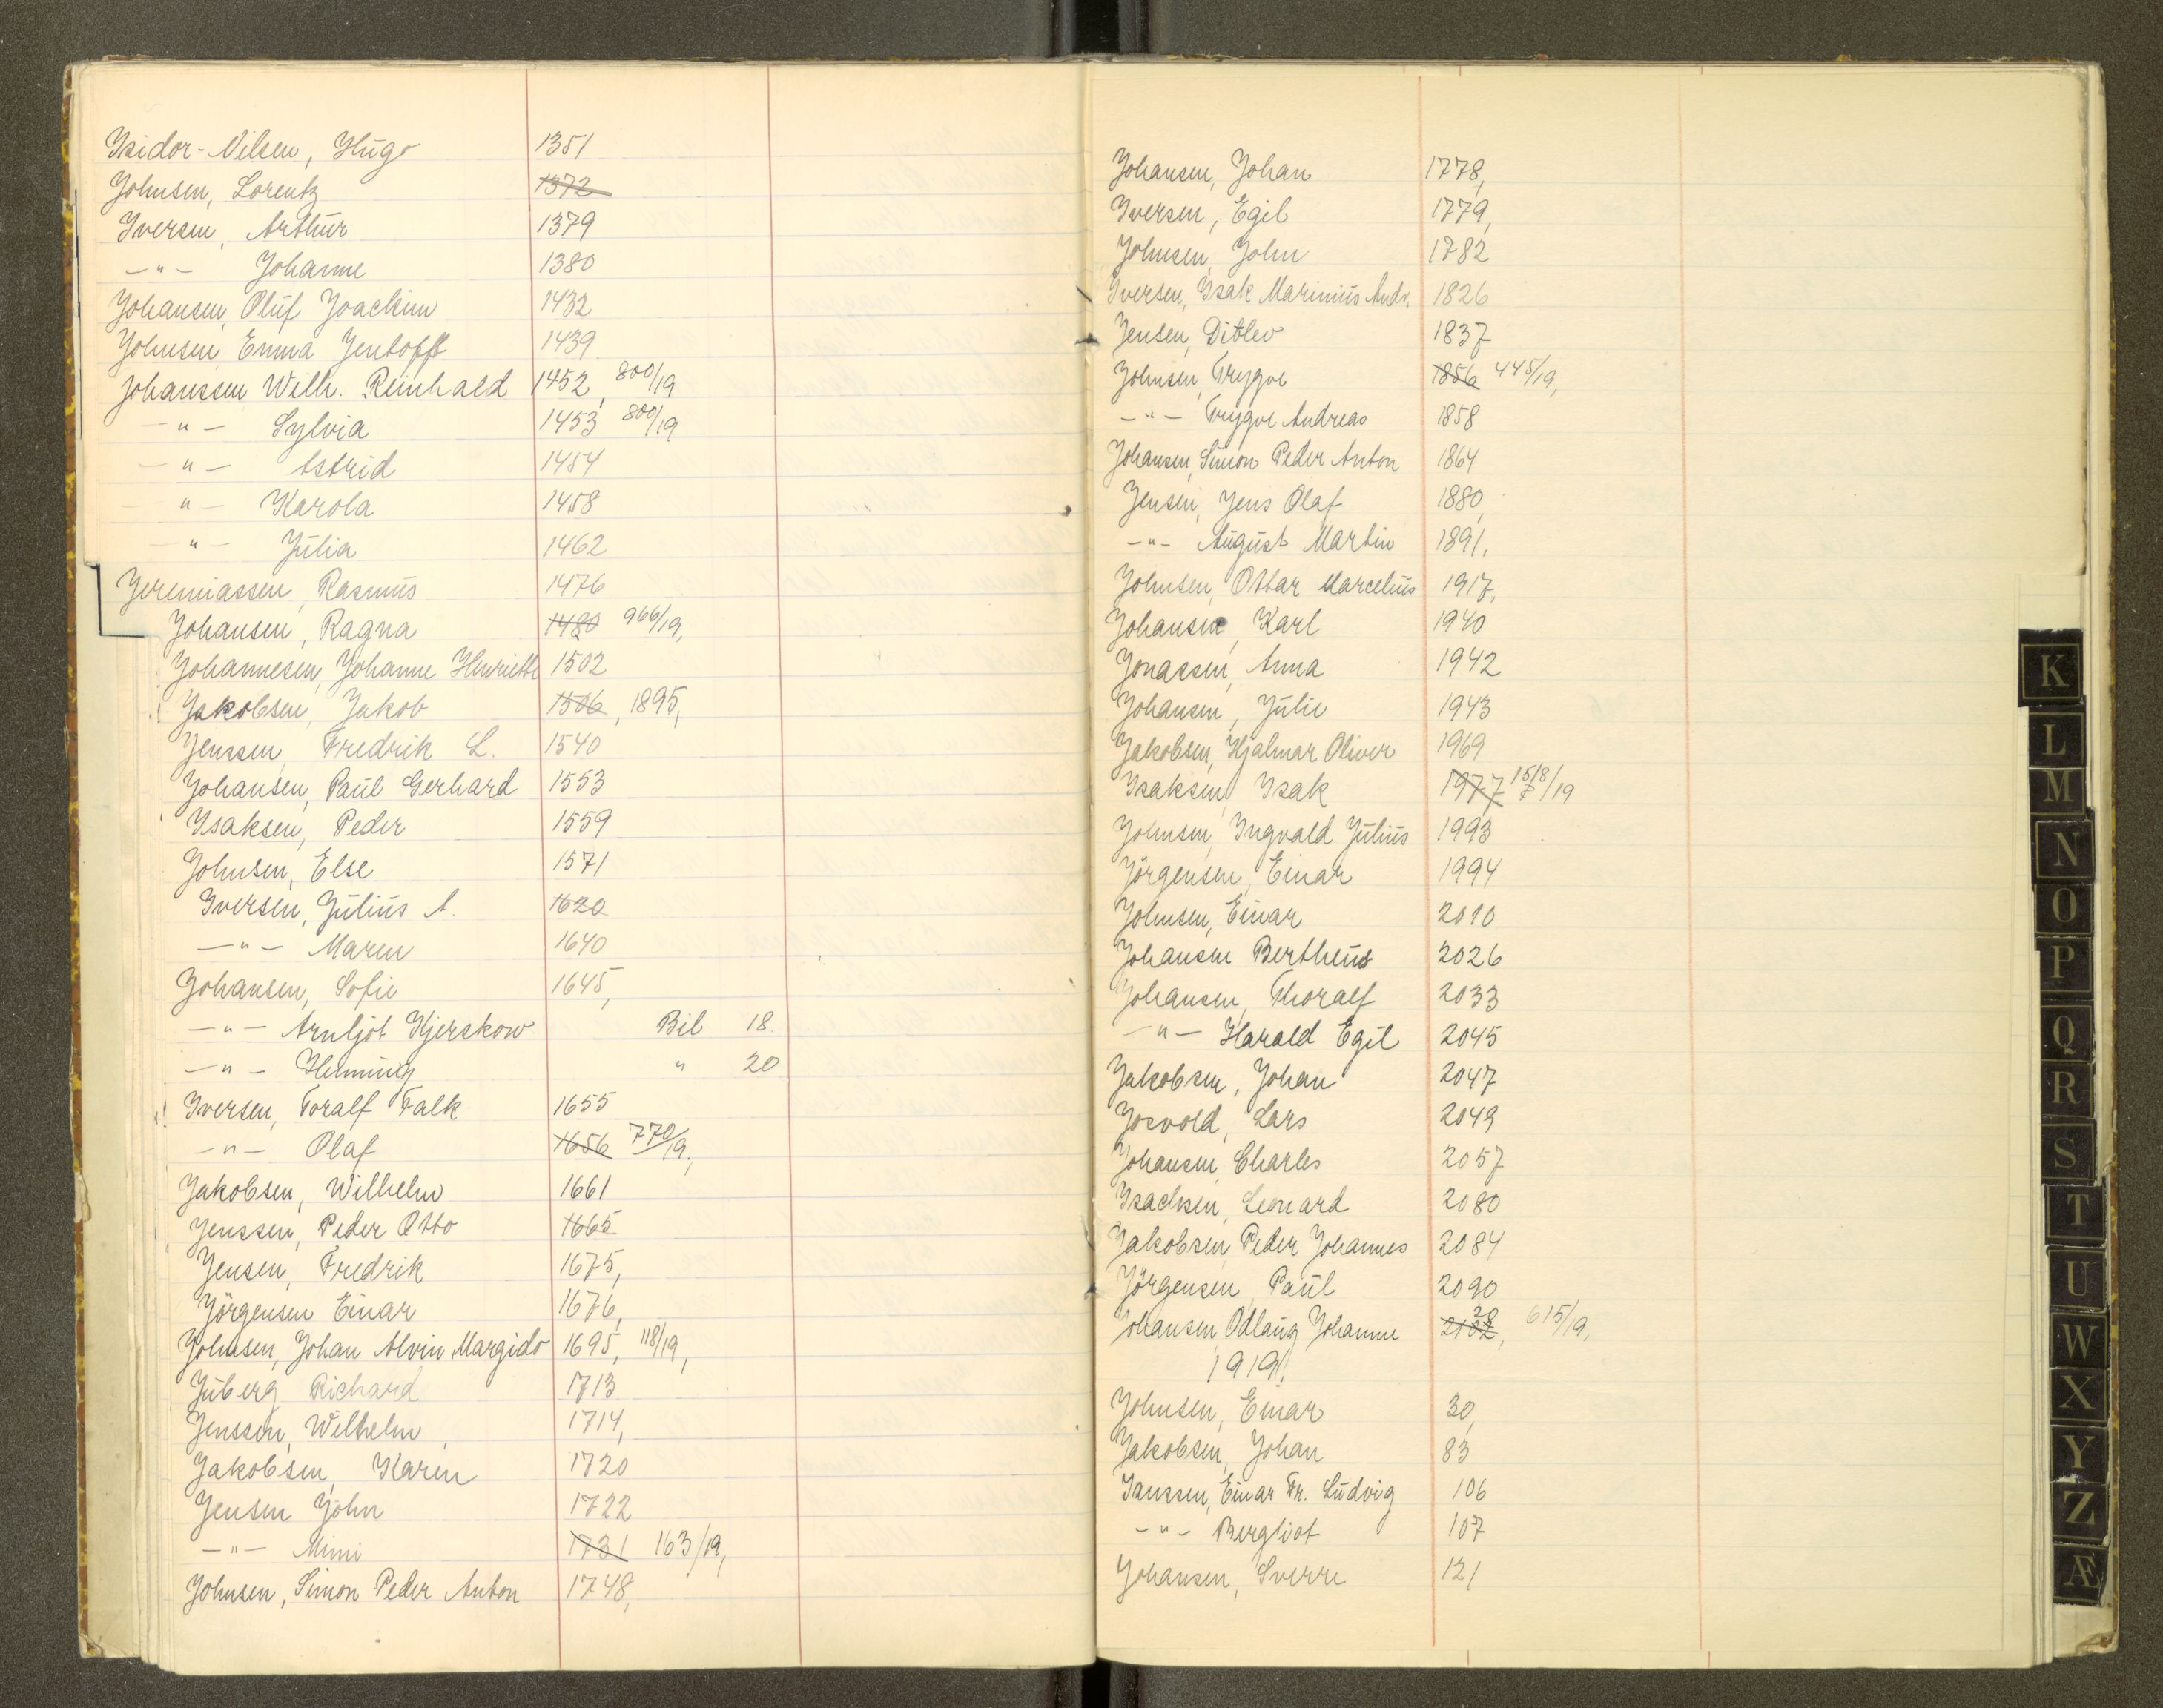 Isidor-Nilsen, Hugo 1351
Johnsen, Lorentz 1372
Iversen, Arthur 1379
-"- Johanne 1380
Johansen, Oluf Joachim 1432
Johnsen, Emma Jentofft 1439
Johanssen Wilh. Reinhald 1452, 800/19
-"- Sylvia 1453 800/19
-"- Astrid 1454
-"- Karola 1458
-"- Julia 1462
Jeremiassen, Rasmus 1476
Johansen, Ragna 1480 966/19,
Johannesen, Johanne Henriette 1502
Jakobsen, Jakob 1506, 1895,
Jenssen, Fredrik L. 1540
Johansen, Paul Gerhard 1553
Isaksen, Peder 1559
Johnsen, Else 1571
Iversen, Julius A. 1620
-"- Maren 1640
Johansen, Sofie 1645,
-"- Arnljot Hjerskow Bil 18.
-"- Henning " 20
Iversen, Toralf Falk 1655
-"- Olaf 1656 770/19,
Jakobsen, Wilhelm 1661
Jenssen, Peder Otto 1665
Jensen, Fredrik 1675,
Jörgensen Einar 1676,
Johnsen, Johan Alvin Margido 1695, 118/19,
Juberg Richard 1713
Jenssen, Wilhelm, 1714,
Jakobsen, Karen 1720
Jensen John 1722
-"- Mimi 1731 163/19,
Johnsen, Simon Peder Anton 1748,
Johansen, Johan 1778,
Iversen, Egil 1779,
Johnsen, John 1782
Iversen, Isak Marinius Andr. 1826
Jensen, Ditlev 1837
Johnsen, Trygve 1856 445/19,
-"- Trygve Andreas 1858
Johansen, Simon Peder Anton 1864
Jensen, Jens Olaf 1880,
-"- August Martin 1891,
Johnsen, Ottar Marcelius 1917,
Johansen, Karl 1940
Jonassen, Anna 1942
Johansen, Julie 1943
Jakobsen, Hjalmar Oliver 1969
Isaksen, Isak 1977 1518/19
Johnsen, Ingvald Julius 1993
Jörgensen, Einar 1994
Johnsen, Einar 2010
Johansen Bertheus 2026
Johansen, Thoralf 2033
-"- Harald Egil 2045
Jakobsen, Johan 2047
Josvold, Lars 2049
Johansen, Charles 2057
Isachsen, Leonard 2080
Jakobsen, Peder Johannes 2084
Jörgensen, Paul 2090
Johansen, Odlaug Johanne 2102, 615/19,
1919!
Johnsen, Einar 30,
Jakobsen, Johan 83
Janssen, Einar Fr. Ludvig 106
-"- Bergliot 107
Johansen, Sverre 121
K
L
M
N
O
P
Q
R
S
T
U
W
X
Y
Z
Æ